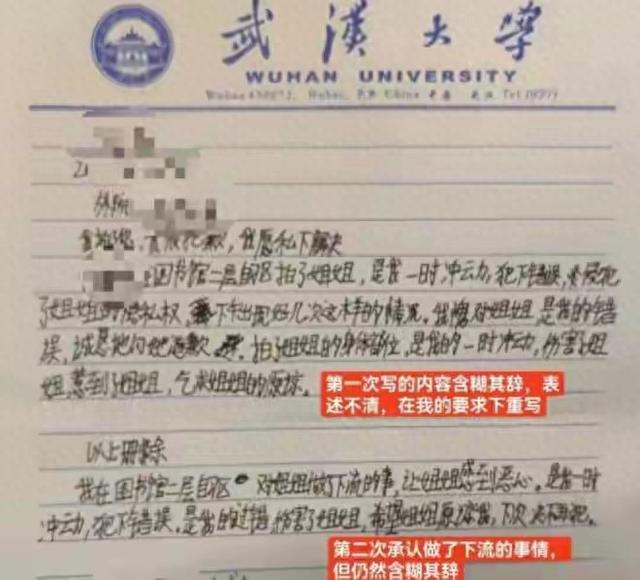 武漢大學
WUHAN UNIVERSITY
Wuhan 430072, Hubei, P.R. China 中国 武汉 Tel
我愿私下解决
图书馆二层自习区拍了姐姐，是我一时冲动，犯下错误，侵犯
了姐姐的隐私权，下次出现好几次这样的情况。我愧对姐姐，是我的错
误，诚恳地向她道歉，拍了姐姐的身体部位，是我的一时冲动，伤害了姐
姐，惹到了姐姐，乞求姐姐的原谅。
第一次写的内容含糊其辞，表
述不清，在我的要求下重写
以上删除
我在图书馆二层自习区对姐姐做了下流的事，让姐姐感到恶心。是我一时
冲动，犯下错误。是我的过错伤害了姐姐，希望姐姐原谅我，下次决不再犯。
第二次承认做了下流的事情，
但仍然含糊其辞